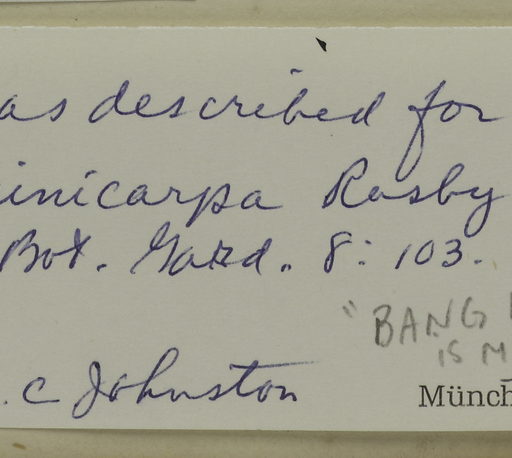 as described for
inicarpa Rusby
Bot. Gard. 8: 103.
"BANG
IS M
. C Johnston
Münch